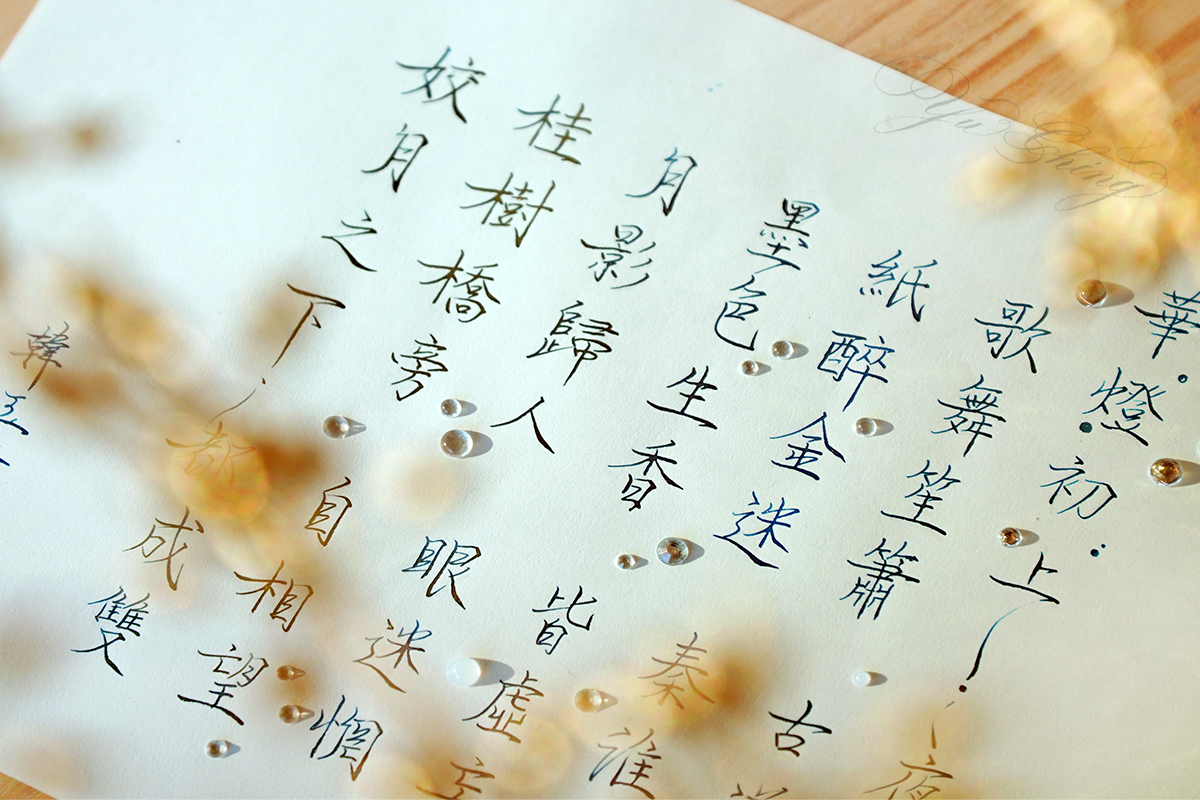 華．燈．初．上 夜
歌舞笙簫 古
紙醉金迷 秦淮
墨色生香 皆虛妄
月影歸人 眼迷惘
桂樹橋旁 自相望
姣月之下 成雙
韓
Yu Ching